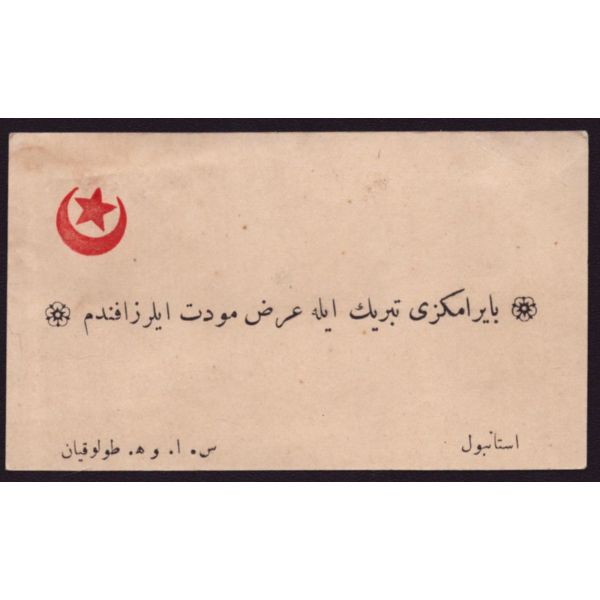 بايرامكزى تبريك ايله عرض مودت ايلرز افندم
استانبول
س. ا. و ه. طولوقيان